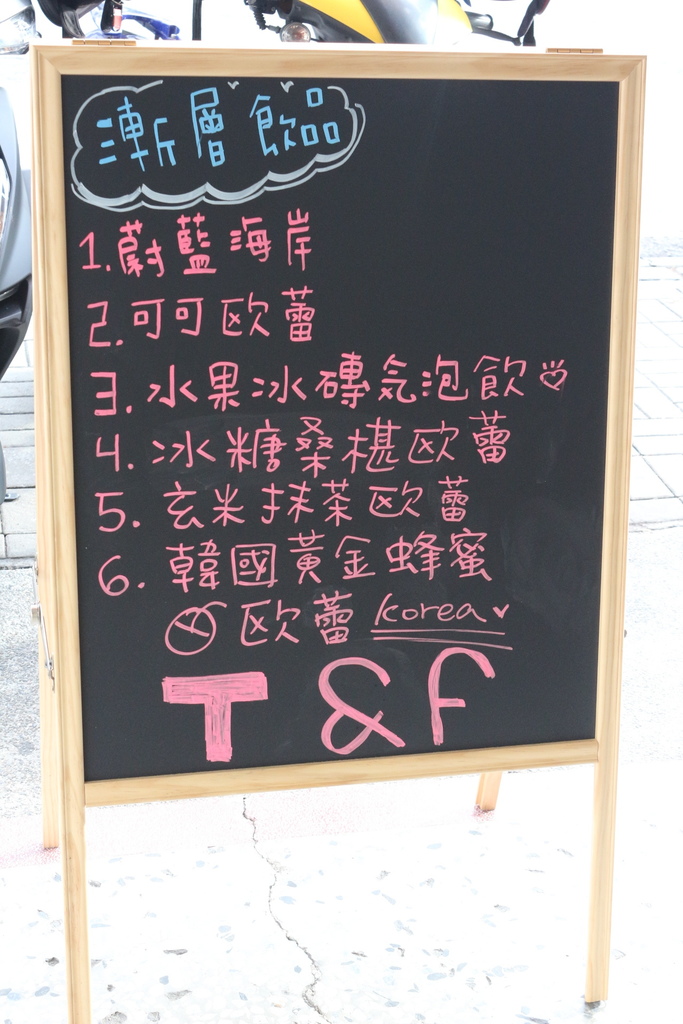 漸層飲品
1.蔚藍海岸
2.可可欧蕾
3.水果冰磚気泡飲♡
4.冰糖桑椹欧蕾
5.玄米抹茶欧蕾
6.韓國黃金蜂蜜
欧蕾 Korea
T & F